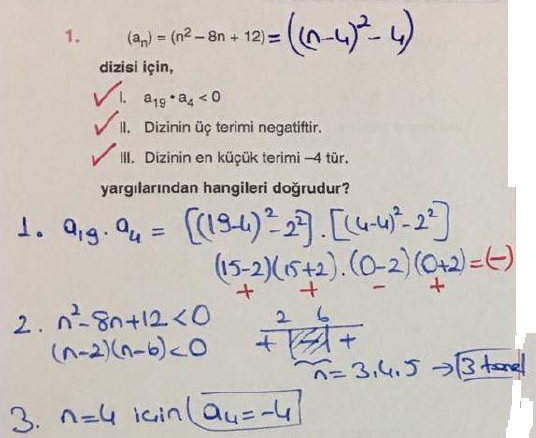 1. (aₙ) = (n² – 8n + 12) = ((n-4)² - 4)
dizisi için,
✓ I. a₁₉ • a₄ < 0
✓ II. Dizinin üç terimi negatiftir.
✓ III. Dizinin en küçük terimi –4 tür.
yargılarından hangileri doğrudur?
1. a₁₉ . a₄ = [(19-4)² - 2²] . [(4-4)² - 2²]
(15-2)(15+2).(0-2)(0+2) = (-)
+ + - +
2. n² - 8n + 12 < 0
2 6
(n-2)(n-6) < 0
+ +
n = 3,4,5 → 3 tane
3. n=4 için a₄ = -4